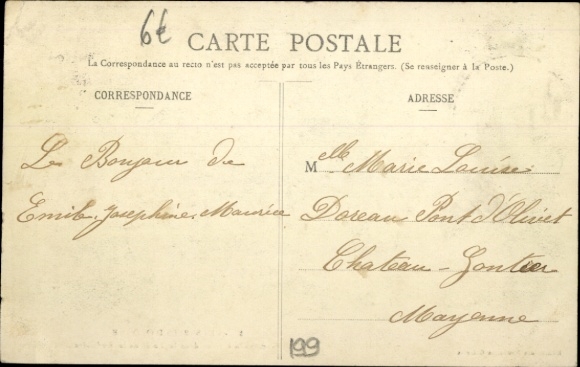 6€
CARTE POSTALE
La Correspondance au recto n'est pas acceptée par tous les Pays Étrangers. (Se renseigner à la Poste.)
CORRESPONDANCE
Le Bonjour de
Emile, Joséphine, Maurice
ADRESSE
Melle Marie Louise
Doreau Pont d'Olivet
Chateau-Gontier
Mayenne
199